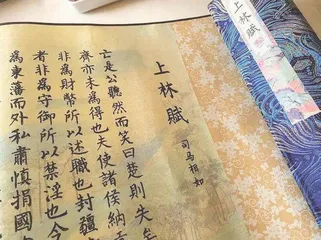 上林賦
上林賦
司馬相如
亡是公聽然而笑曰楚則失矣
齊亦未爲得也夫使諸侯納
者非爲財幣所以述職也封疆
者非爲守御所以禁淫也今
爲東藩而外私肅慎捐國